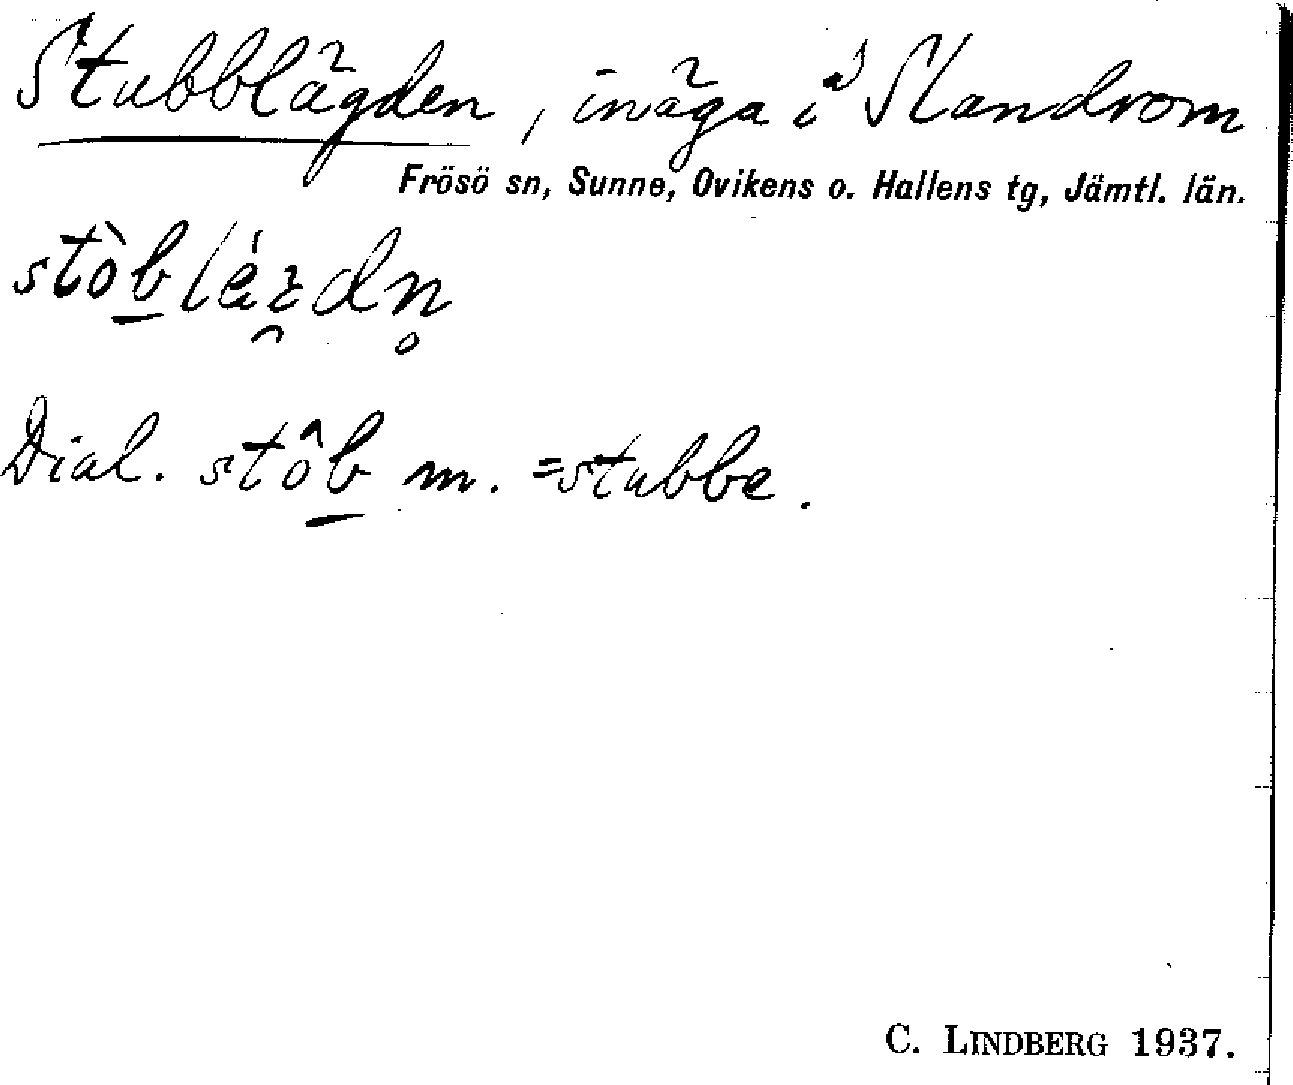 Stubblägden, inäga i Slandrom
Frösö sn, Sunne, Ovikens o. Hallens tg, Jämtl. län.
Dial. stôb m. = stubbe.
C. LINDBERG 1937.